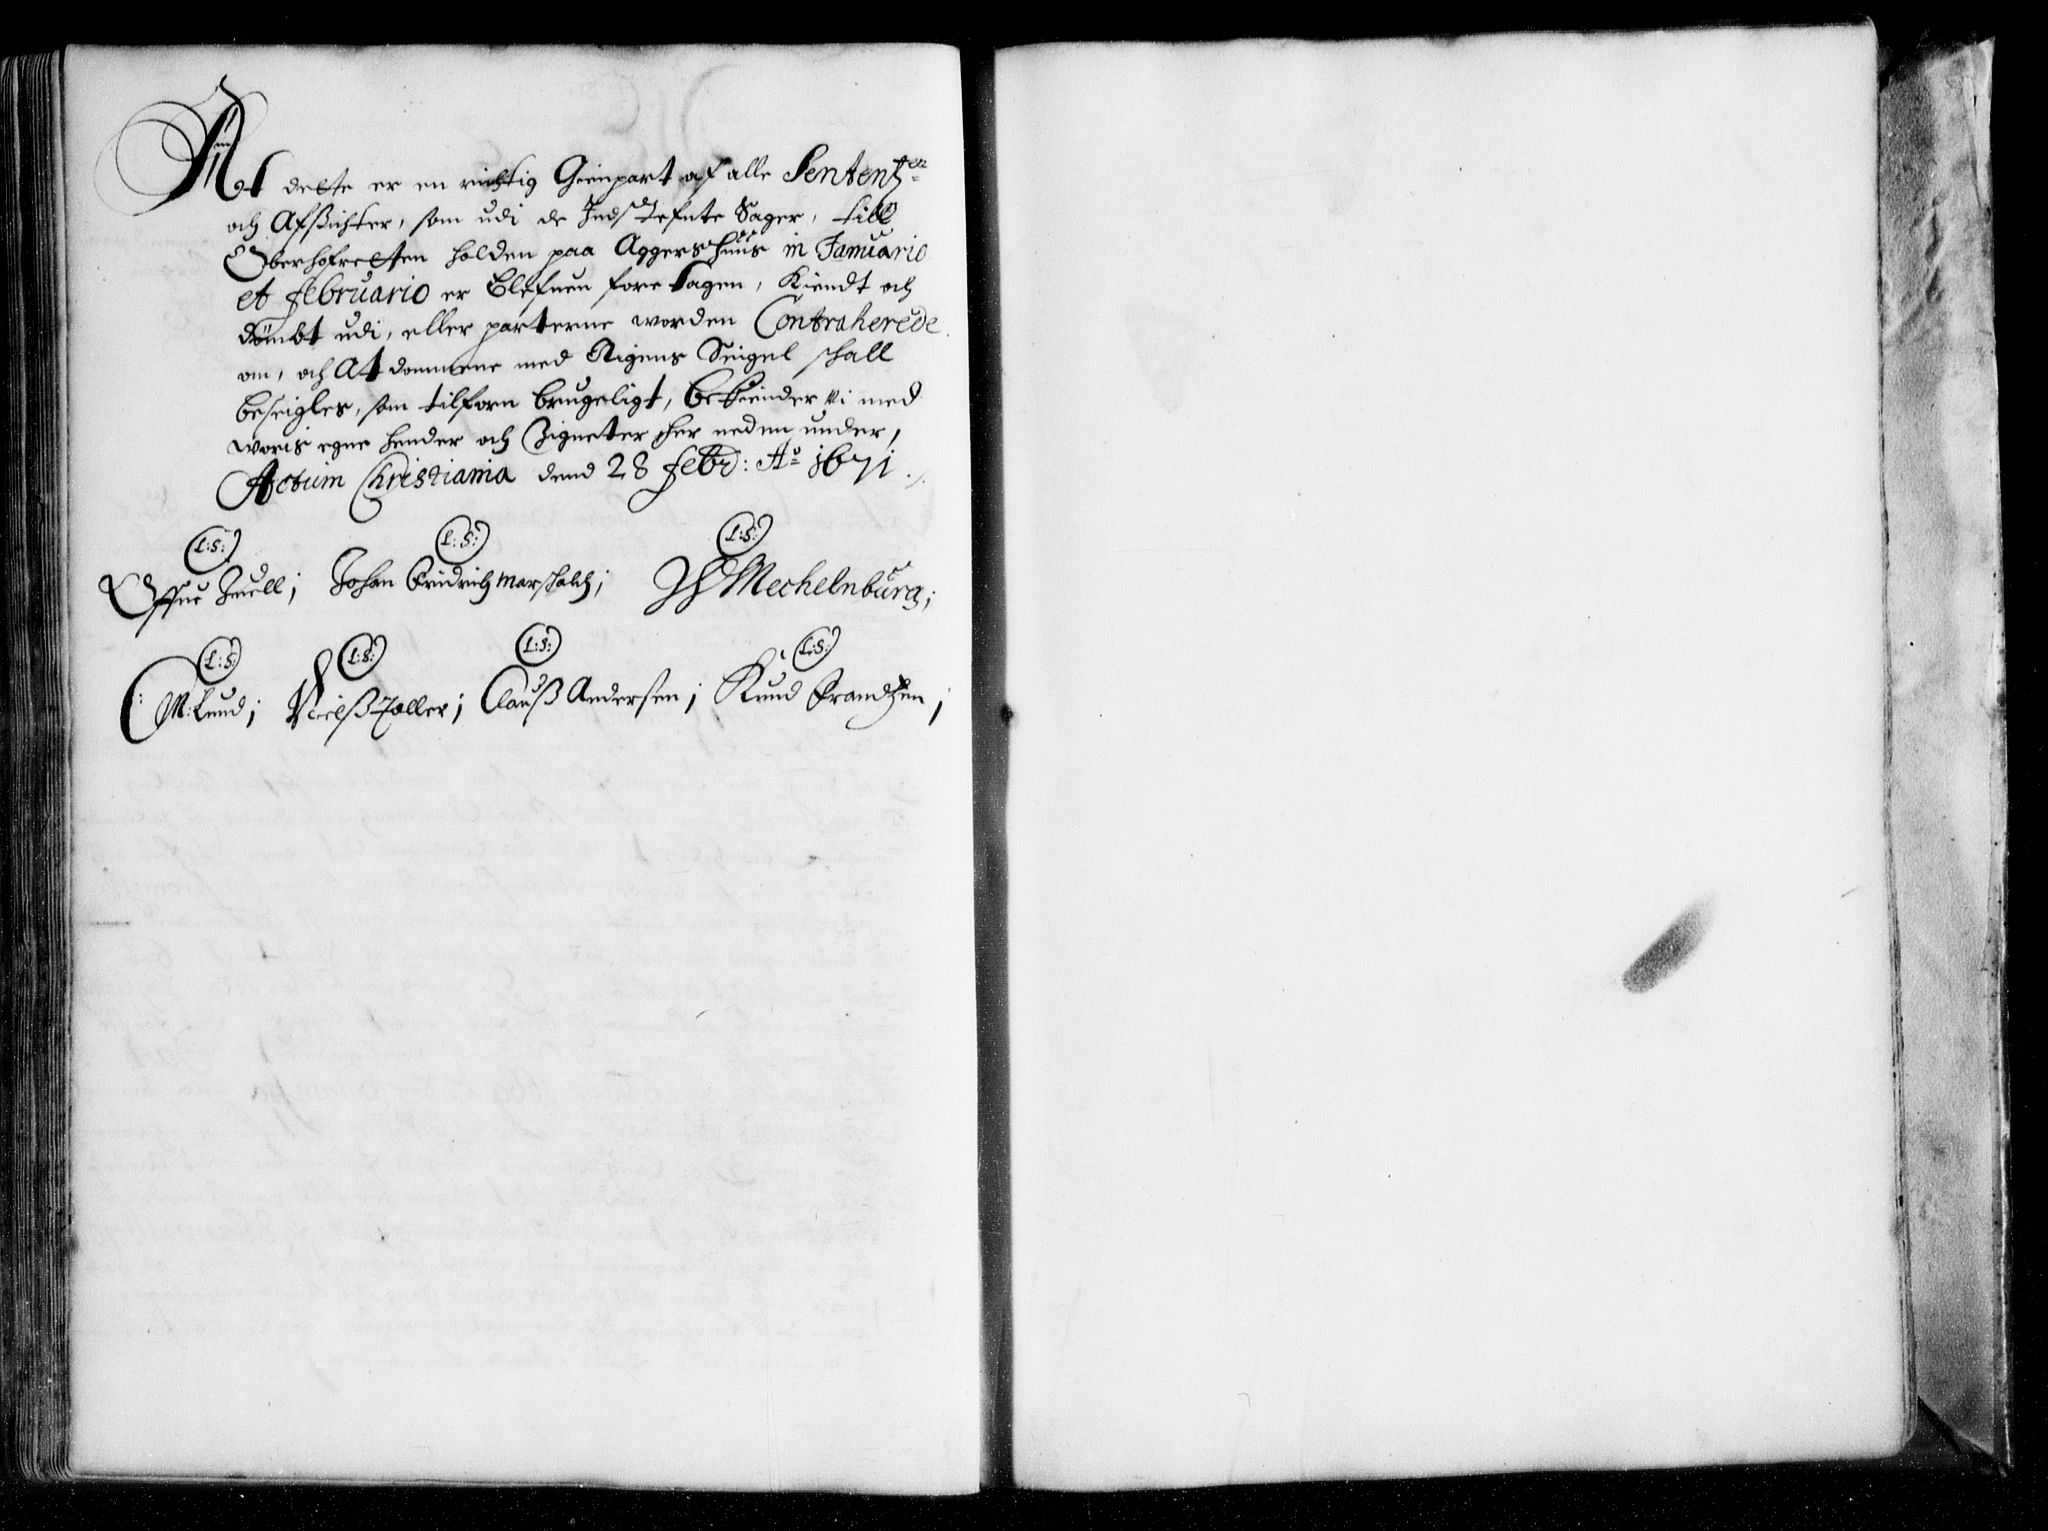 At dette er en richtig Gienpart af alle Sententzer
och Afsichter, som udi de Indstefnte Sager, till
Oberhofretten holden paa Aggershuus in Januario
et Februario er blefuen foretagen, Kiendt och
dömbt udi, eller parterne worden Contraherede
om, och At dommene med Rigens Seigel schall
beseigles, som tilforn brugeligt, bekiender vi med
woris egne hender och Zigneter her neden under,
Actum Christiania dend 28 Febr: Ao 1671 ./.
L:S: L:S: L:S:
Offue Juell; Johan Fridrich Marschalch; W Mechelnburg;
L:S: L:S: L:S: L:S:
C: M: Lund; Nielß Toller; Clauß Andersen; Knud Frandtzen;